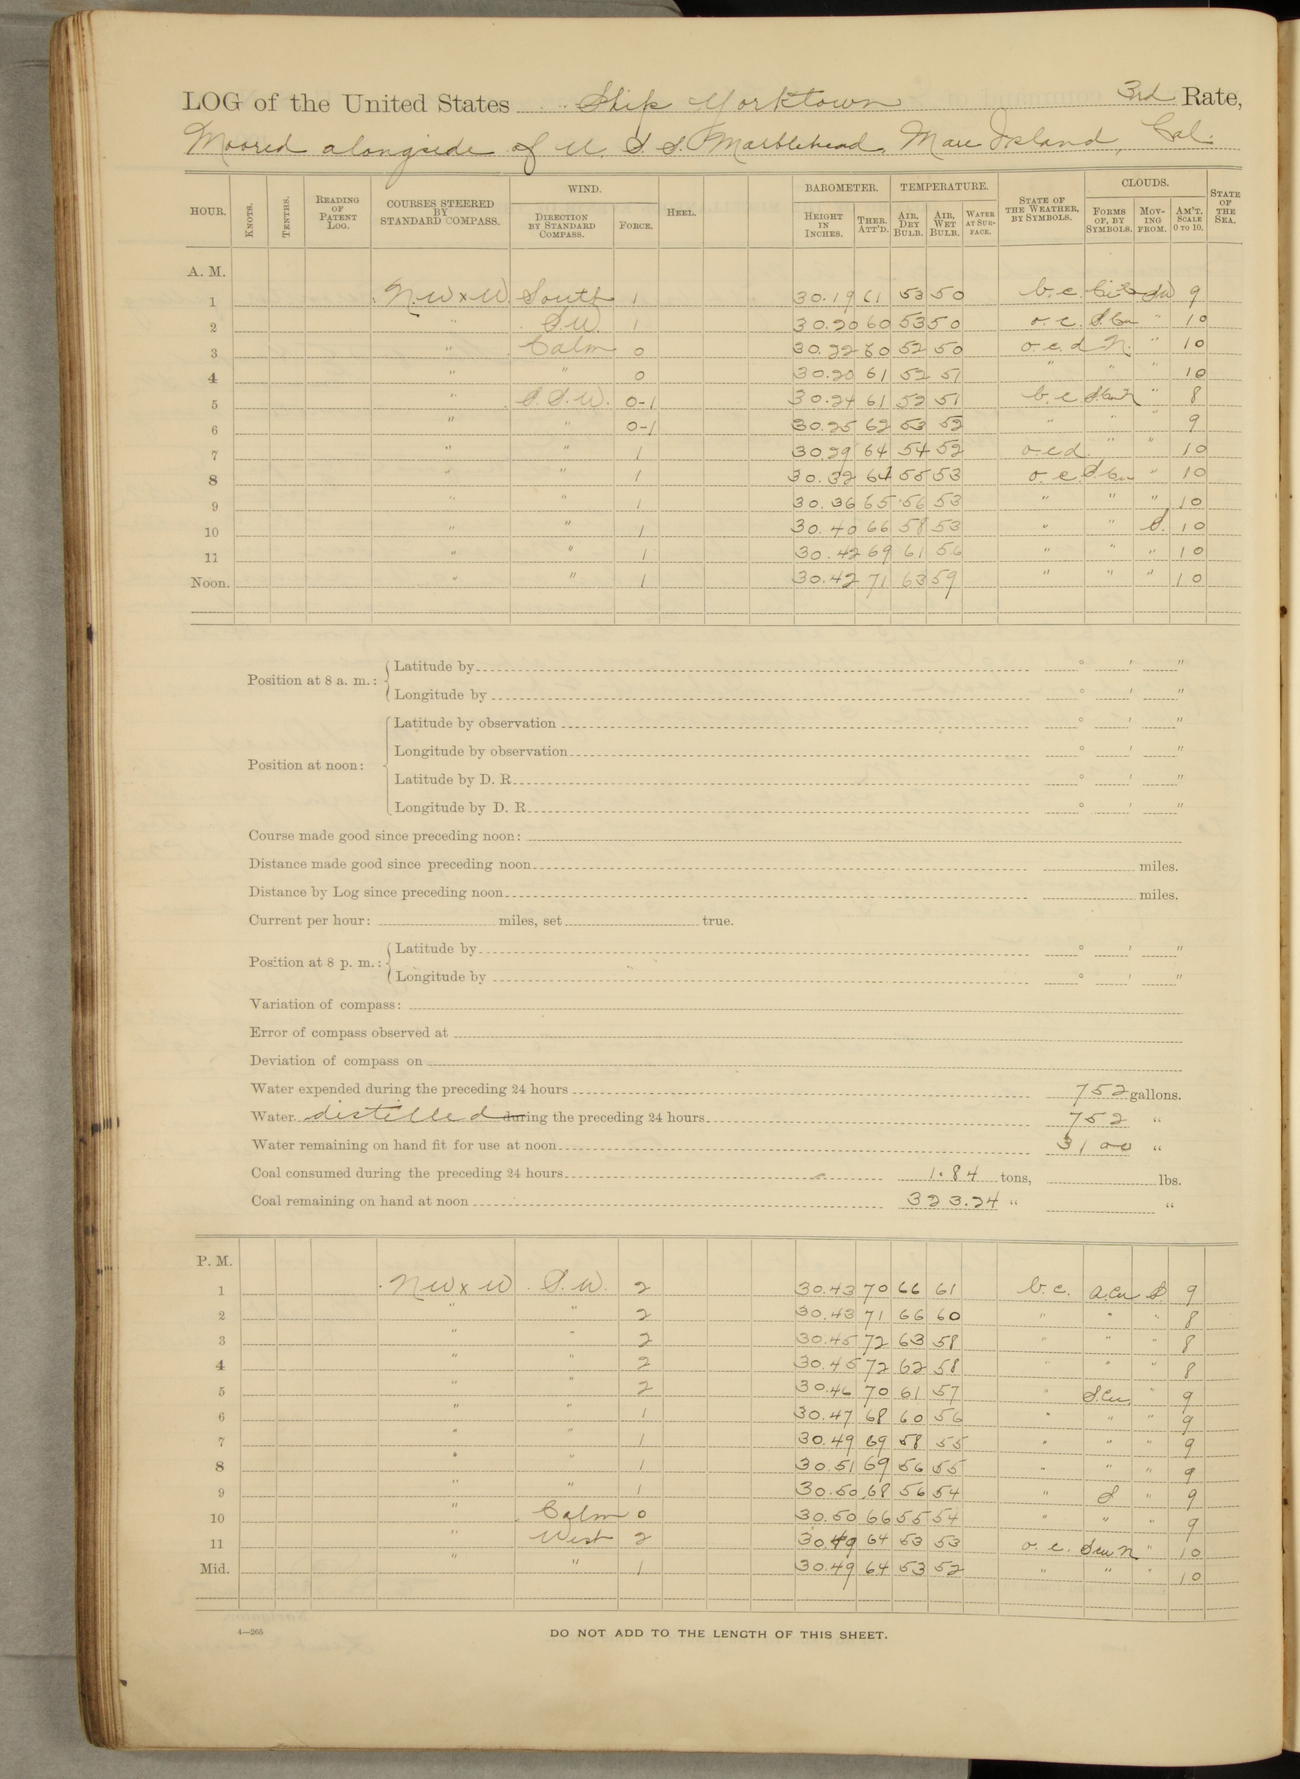 LOG of the United States Ship Yorktown 3rd Rate,
Moored alongside of U. S. S. Marblehead, Mare Island, Cal.
HOUR. KNOTS. TENTHS. READING OF PATENT LOG. COURSES STEERED BY STANDARD COMPASS. WIND. DIRECTION BY STANDARD COMPASS. FORCE. HEEL. BAROMETER. HEIGHT IN INCHES. THER. ATT'D. TEMPERATURE. AIR, DRY BULB. AIR, WET BULB. WATER AT SURFACE. STATE OF THE WEATHER, BY SYMBOLS. CLOUDS. FORMS OF, BY SYMBOLS. MOVING FROM. AM'T. SCALE 0 TO 10. STATE OF THE SEA.
A. M.
1 N.W x W. South 1 30.19 61 53 50 b.c. SW 9
2 " S.W. 1 30.20 60 53 50 o.c. S.Cu " 10
3 " Calm 0 30.22 60 52 50 o.c.d N. " 10
4 " " 0 30.20 61 52 51 " " " 10
5 " S.S.W. 0-1 30.24 61 52 51 b.c. " 8
6 " " 0-1 30.25 62 53 52 " " " 9
7 " " 1 30.29 64 54 52 o.c.d " " 10
8 " " 1 30.32 64 55 53 o.c. S.Cu " 10
9 " " 1 30.36 65 56 53 " " " 10
10 " " 1 30.40 66 58 53 " " S. 10
11 " " 1 30.42 69 61 56 " " " 10
Noon. " " 1 30.42 71 63 59 " " " 10
Position at 8 a. m.: Latitude by ° ′ ″
Longitude by ° ′ ″
Position at noon: Latitude by observation ° ′ ″
Longitude by observation ° ′ ″
Latitude by D. R. ° ′ ″
Longitude by D. R. ° ′ ″
Course made good since preceding noon:
Distance made good since preceding noon miles.
Distance by Log since preceding noon miles.
Current per hour: miles, set true.
Position at 8 p. m.: Latitude by ° ′ ″
Longitude by ° ′ ″
Variation of compass:
Error of compass observed at
Deviation of compass on
Water expended during the preceding 24 hours 752 gallons.
Water distilled during the preceding 24 hours 752 "
Water remaining on hand fit for use at noon 3100 "
Coal consumed during the preceding 24 hours 1.84 tons, lbs.
Coal remaining on hand at noon 323.24 " "
P. M.
1 NW x W S.W. 2 30.43 70 66 61 b.c. a.cu S 9
2 " " 2 30.43 71 66 60 " " " 8
3 " " 2 30.45 72 63 58 " " " 8
4 " " 2 30.45 72 62 58 " " " 8
5 " " 2 30.46 70 61 57 " S.cu. " 9
6 " " 1 30.47 68 60 56 " " " 9
7 " " 1 30.49 69 58 55 " " " 9
8 " " 1 30.51 69 56 55 " " " 9
9 " " 1 30.50 68 56 54 " S " 9
10 " Calm 0 30.50 66 55 54 " " " 9
11 " West 2 30.49 64 53 53 o.c. S cu N " 10
Mid. " " 1 30.49 64 53 52 " " " 10
4—265
DO NOT ADD TO THE LENGTH OF THIS SHEET.